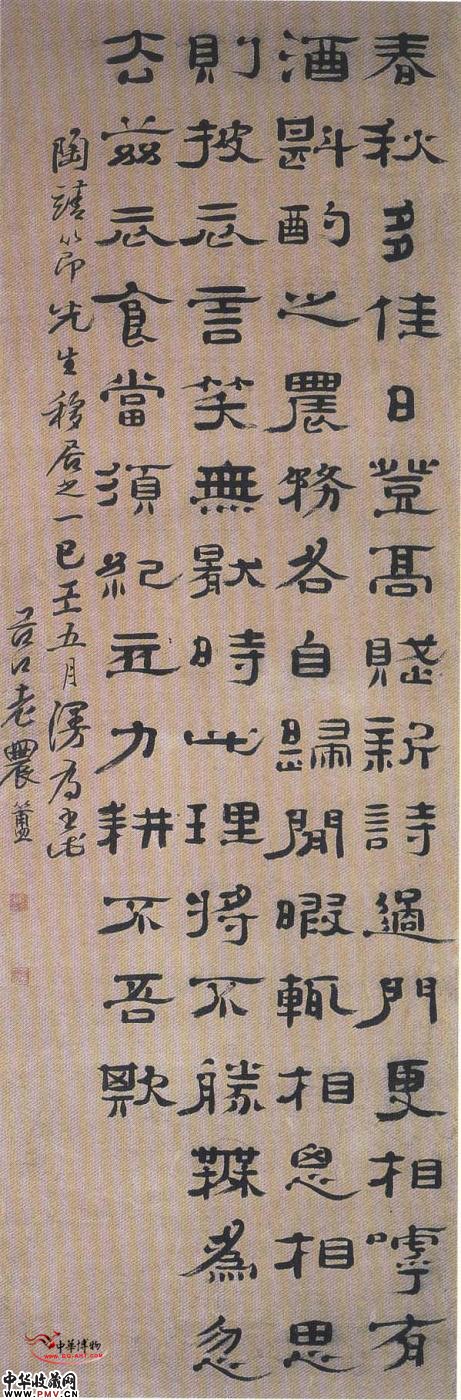 春秋多佳日登高賦新詩過門更相嘑有
酒斟酌之農務各自歸閒暇輒相思相思
則披衣言笑無厭時此理將不勝無為忽
去茲衣食當須紀力耕不吾欺
陶靖節先生移居之一 五月漫為
谷口老農簠
中华博物
WWW.GG-ART.COM
中华收藏网
WWW.PMV.CN